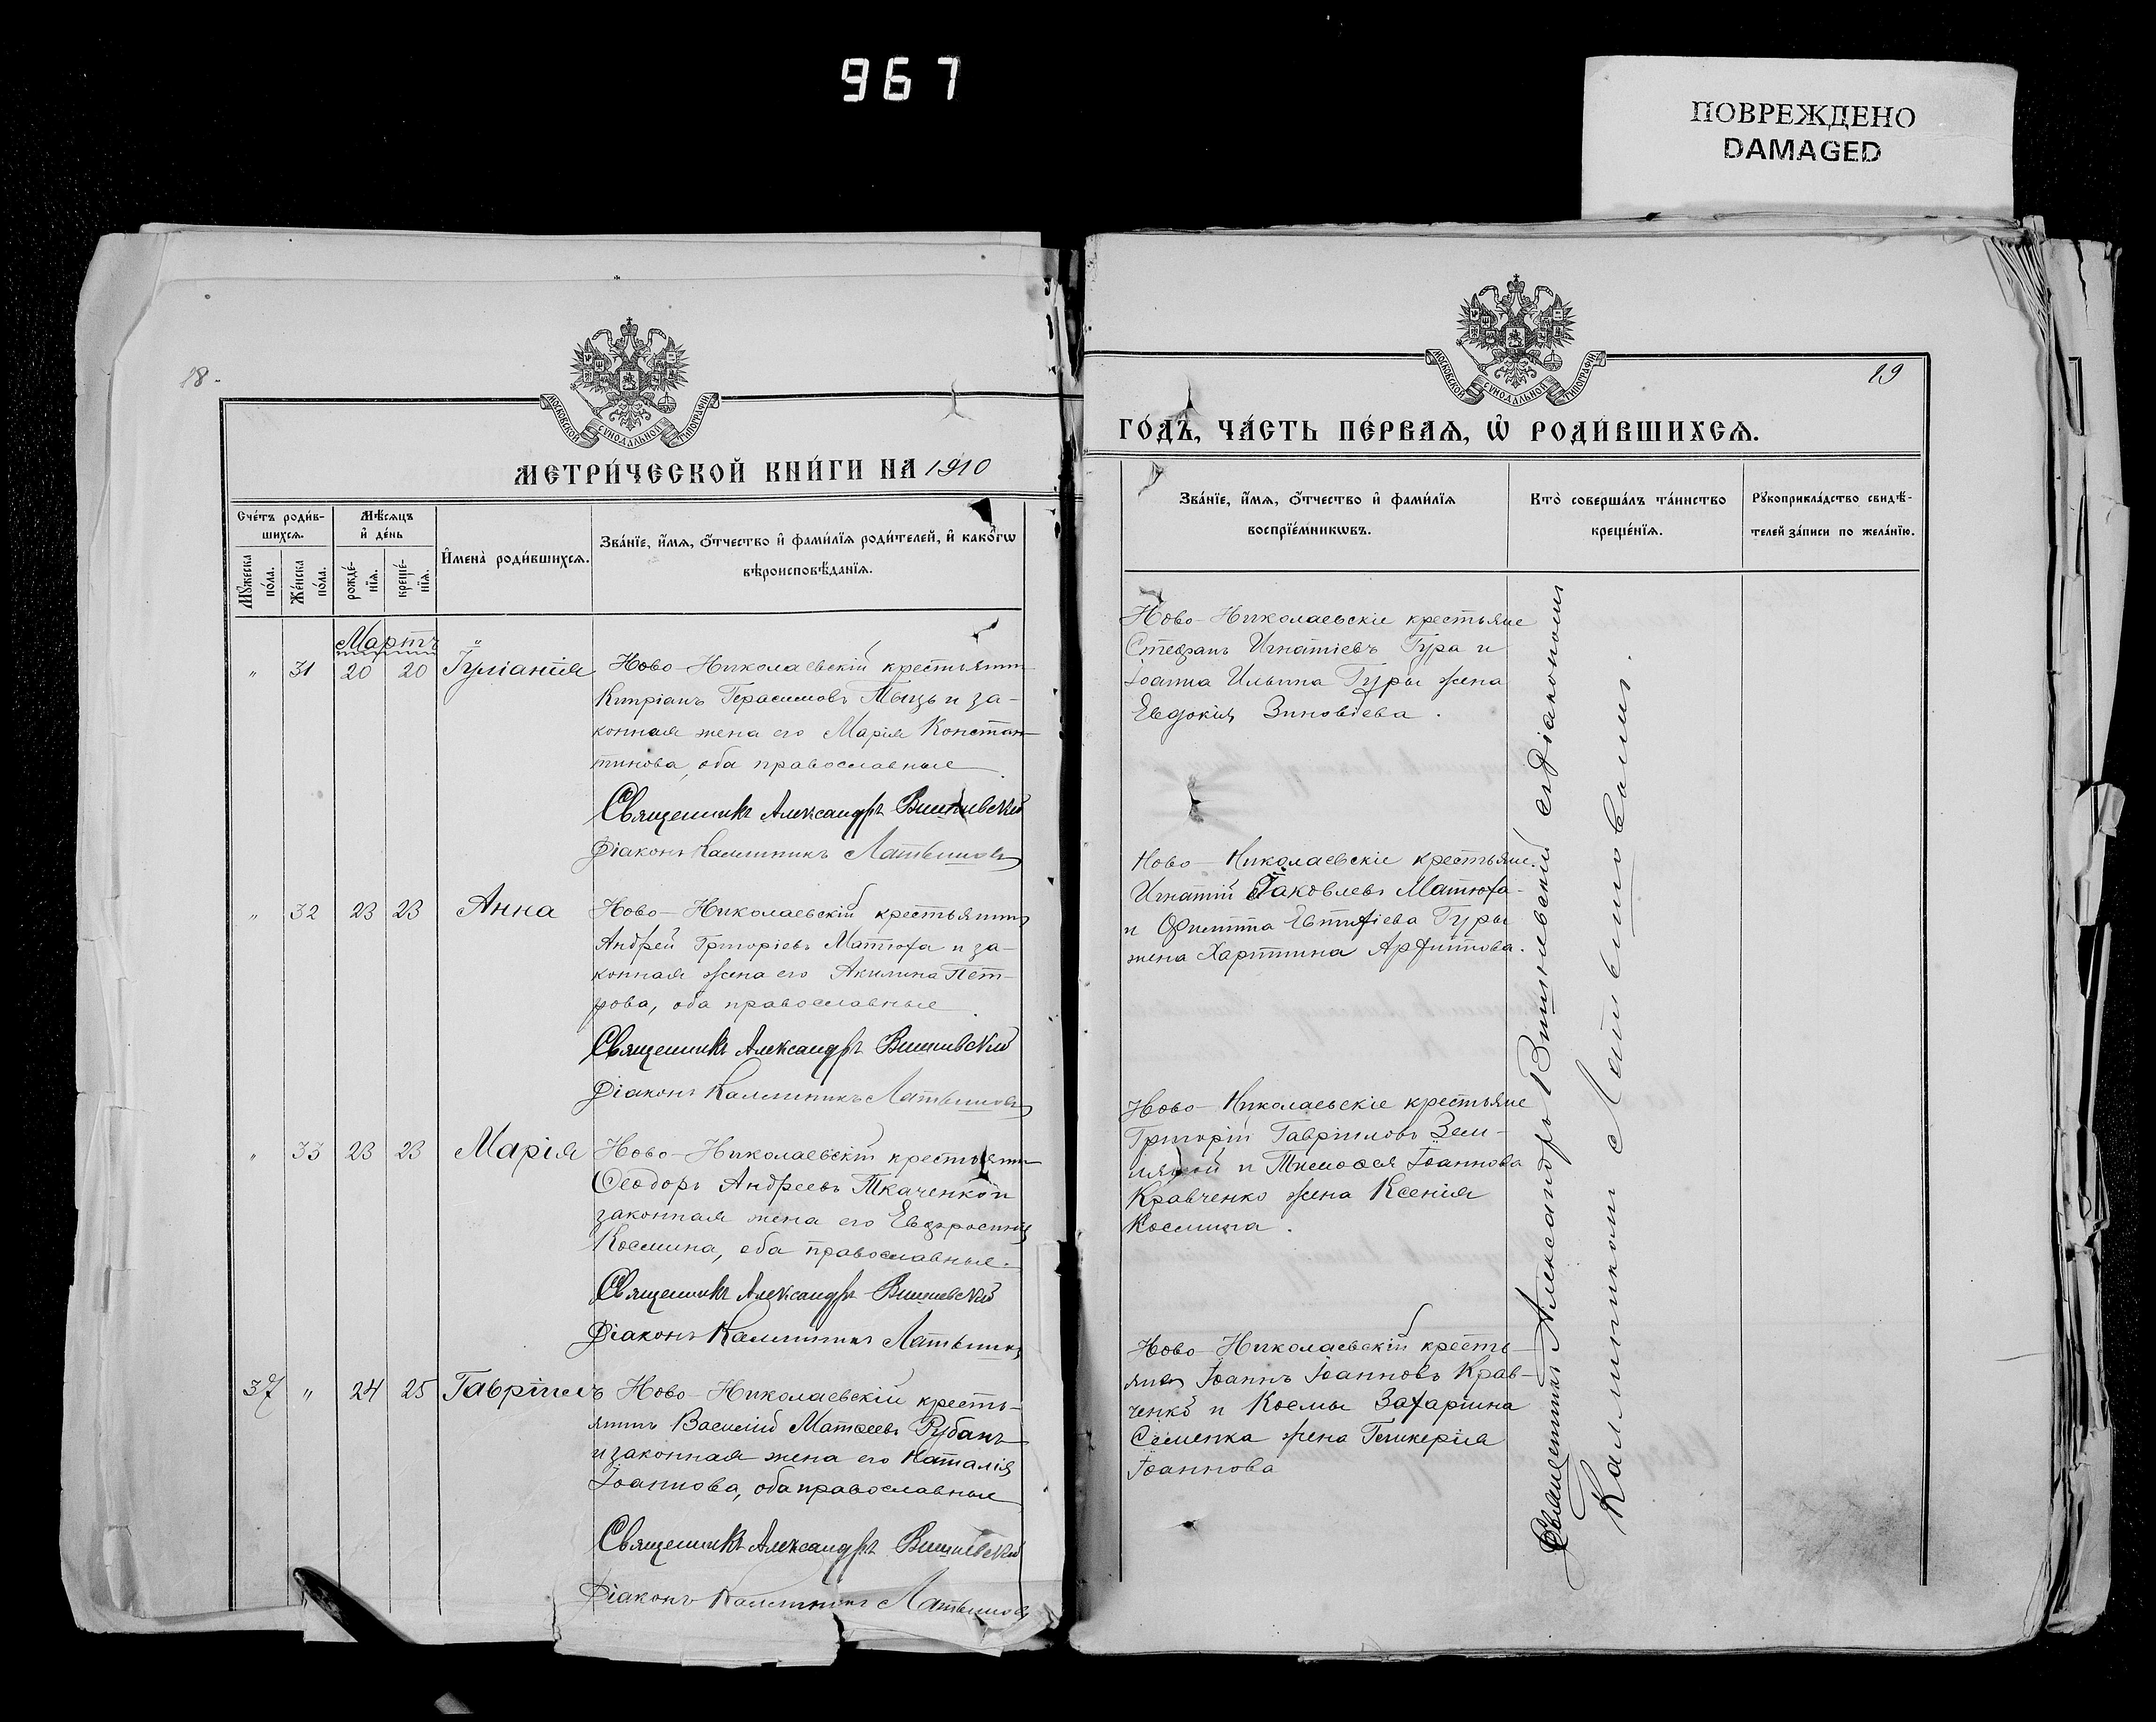 967
ПОВРЕЖДЕНО
DAMAGED
18.
МОСКОВСКОЙ СѴНОДАЛЬНОЙ ТИПОГРАФІИ
МЕТРИ́ЧЕСКОЙ КНИ́ГИ НА 1910
Сче́тъ роди́в-
шихсѧ.
Мꙋ́жеска по́ла.
Же́нска по́ла.
Мѣ́сѧцъ
и҆ де́нь
рожде́-
нїѧ.
креще́-
нїѧ.
И҆мена̀ роди́вшихсѧ.
Зва́нїе, и҆́мѧ, ѻ҆́тчество и҆ фами́лїѧ роди́телей, и҆ како́гѡ
вѣроисповѣ́данїѧ.
Мартъ
„ 31 20 20 Іуліанія
Ново-Николаевскій крестьянинъ
Кипріанъ Герасимовъ Тыцъ и за-
конная жена его Марія Констан-
тинова, оба православные.
Священникъ Александръ Вишневскій
Діаконъ Каллиникъ Латышовъ
„ 32 23 23 Анна
Ново-Николаевскій крестьянинъ
Андрей Григоріевъ Матюха и за-
конная жена его Акилина Пет-
рова, оба православные.
Священникъ Александръ Вишневскій
Діаконъ Каллиникъ Латышовъ
„ 33 23 23 Марія
Ново-Николаевскій крестьянинъ
Ѳеодоръ Андреевъ Ткаченко и
законная жена его Евфросинія
Космина, оба православные.
Священникъ Александръ Вишневскій
Діаконъ Каллиникъ Латышовъ
37 „ 24 25 Гавріилъ
Ново-Николаевскій кресть-
янинъ Василій Матѳеевъ Рубанъ
и законная жена его Наталія
Іоаннова, оба православные
Священникъ Александръ Вишневскій
Діаконъ Каллиникъ Латышовъ
19
МОСКОВСКОЙ СѴНОДАЛЬНОЙ ТИПОГРАФІИ
ГО́ДЪ, ЧА́СТЬ ПЕ́РВАѦ, Ѡ҆ РОДИ́ВШИХСѦ.
Зва́нїе, и҆́мѧ, ѻ҆́тчество и҆ фами́лїѧ
воспрїе́мникѡвъ.
Кто̀ соверша́лъ та́инство
креще́нїѧ.
Рꙋкоприкла́дство свидѣ́-
телей за́писи по жела́нїю.
Ново-Николаевскіе крестьяне
Стефанъ Игнатіевъ Гура и
Іоанна Ильина Гуры жена
Евдокія Зиновіева.
Ново-Николаевскіе крестьяне.
Игнатій Іаковлевъ Матюха
и Филиппа Евтихіева Гуры
жена Харитина
Ново-Николаевскіе крестьяне
Григорій Гавріиловъ Зем-
и Тимоѳея Іоаннова
Кравченко жена Ксенія
Космина.
Ново-Николаевскій кресть-
янинъ Іоаннъ Іоанновъ Крав-
ченко и Космы Захаріина
Семенка жена Гликерія
Іоаннова
Священникъ Александръ Вишневскій съ діакономъ
Каллиникомъ Латышовымъ.